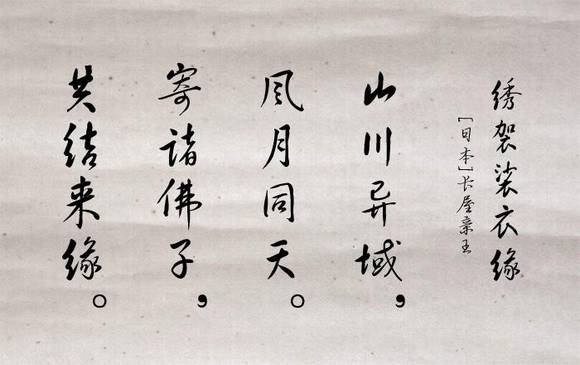 绣袈裟衣缘
[日本]长屋亲王
山川异域，
风月同天。
寄诸佛子，
共结来缘。